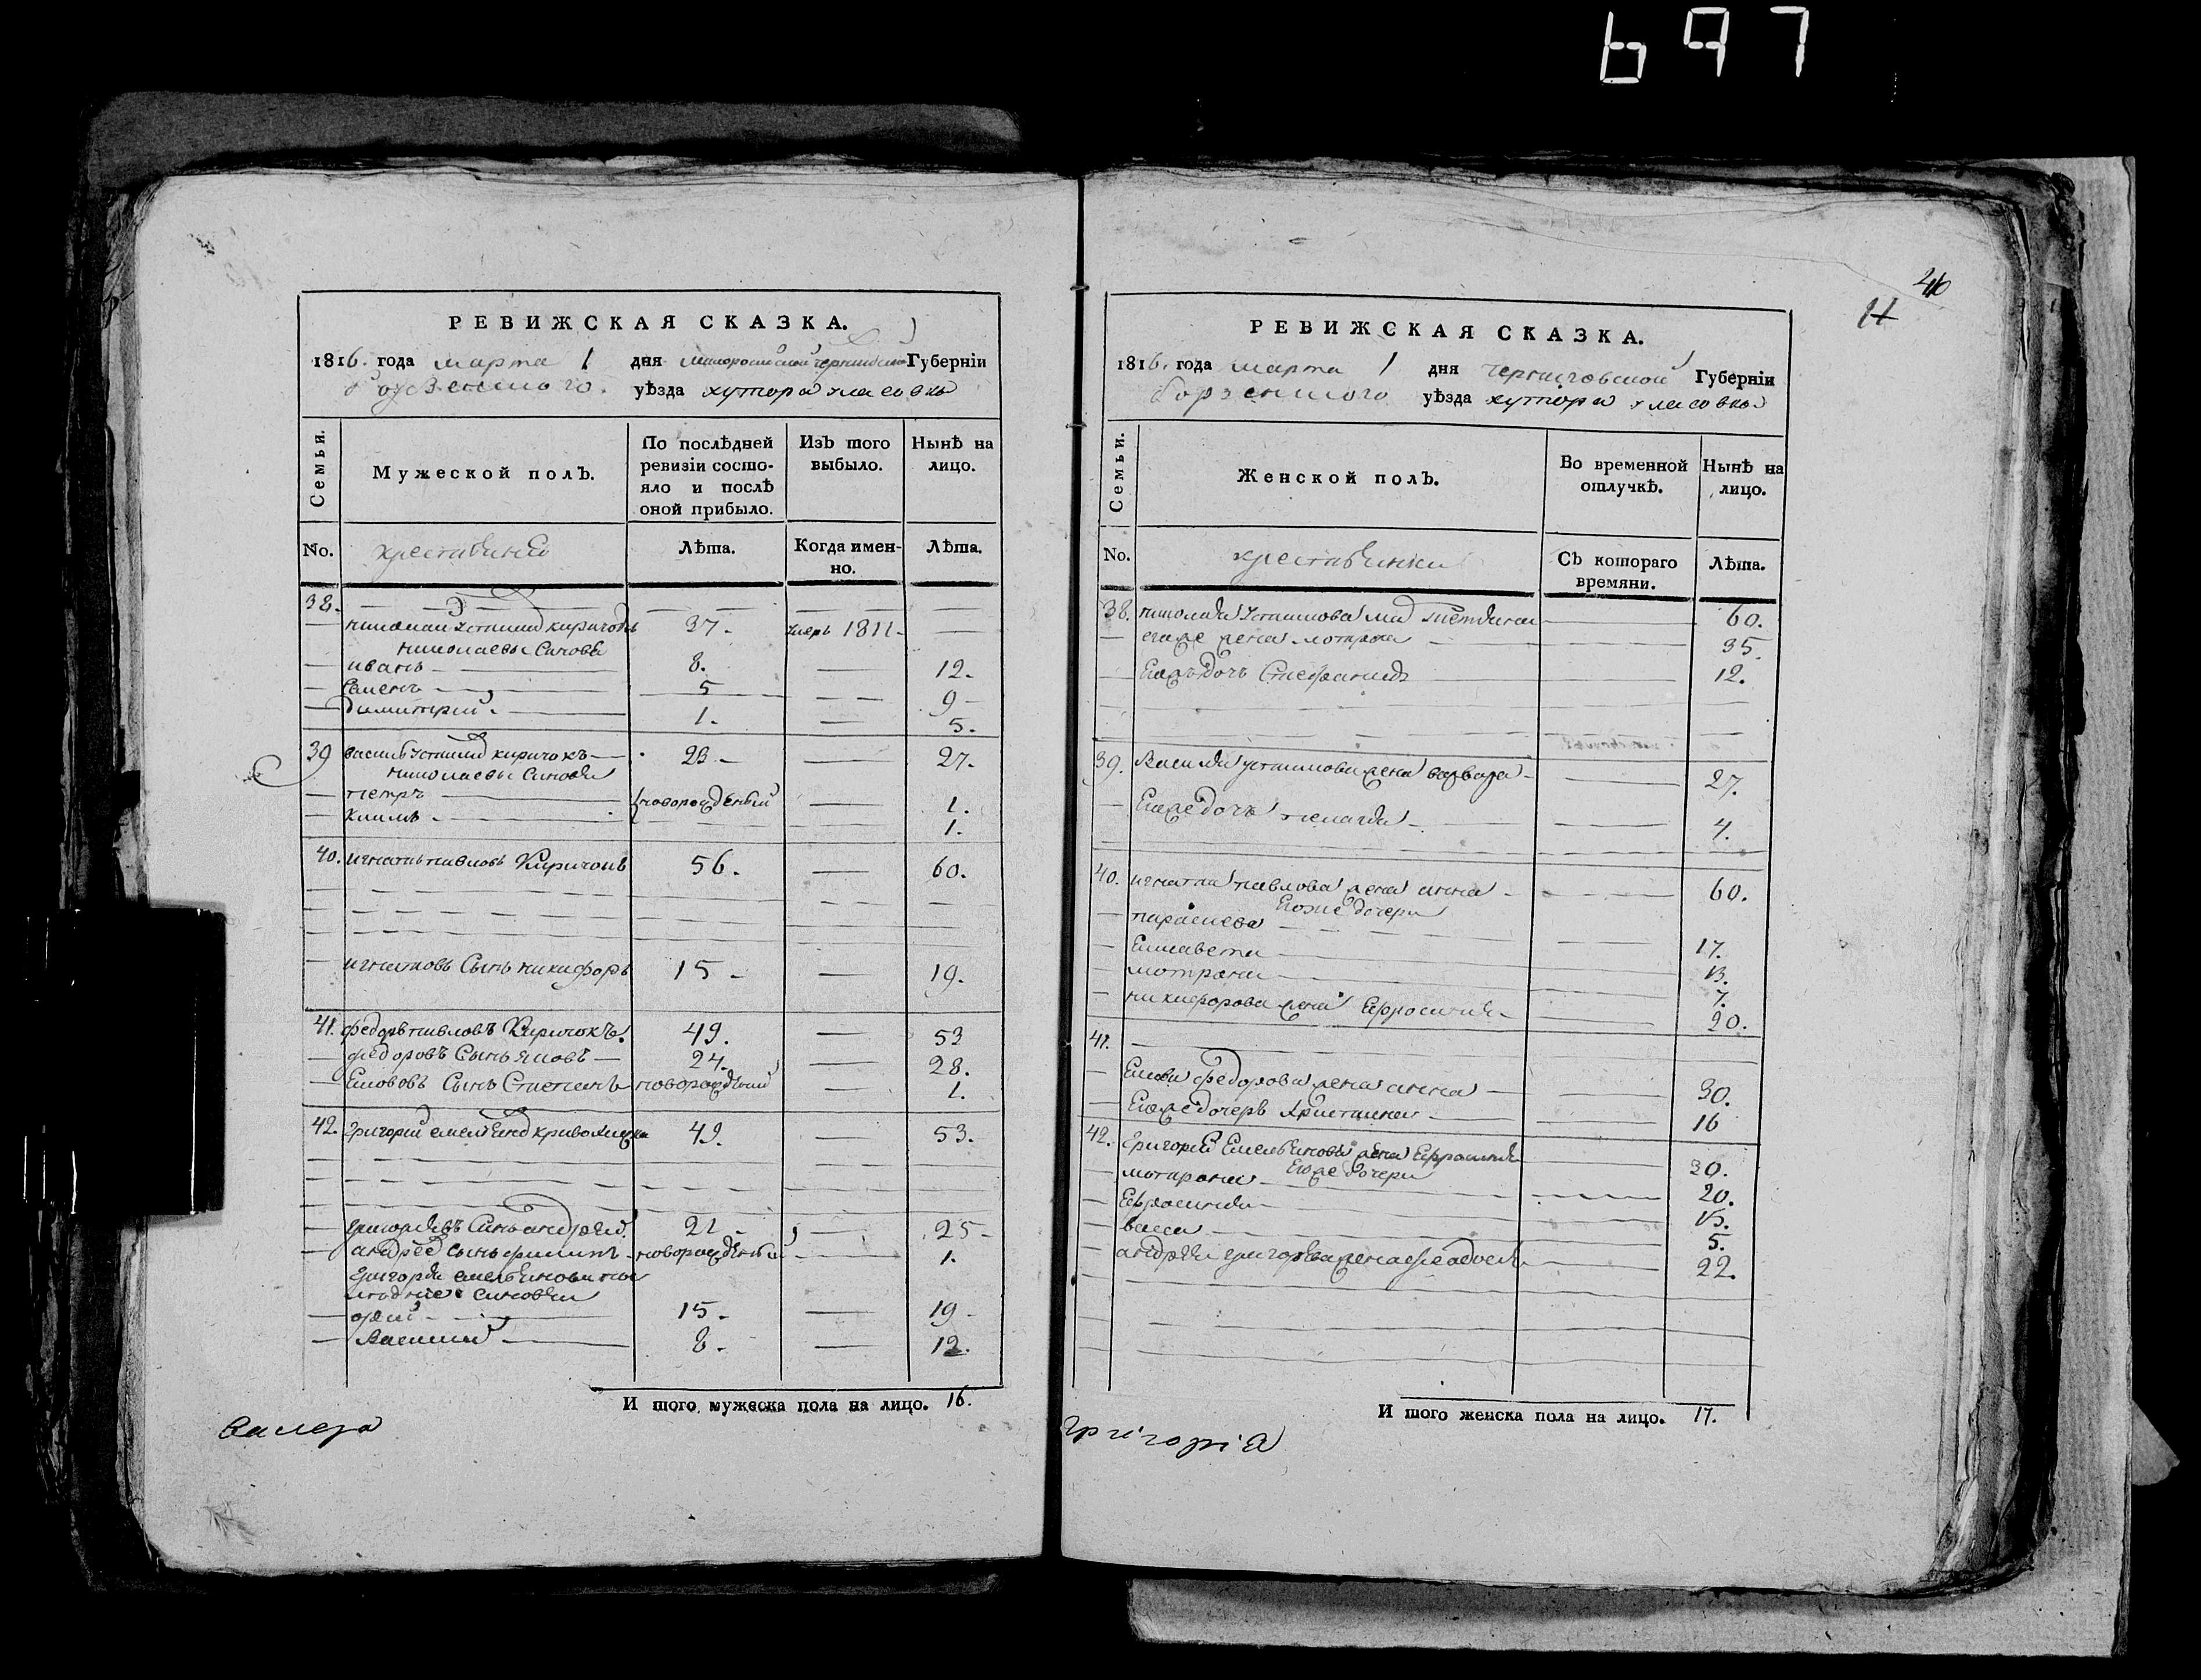 697
46
11
РЕВИЖСКАЯ СКАЗКА.
1816. года марта 1 дня малоросийской черниговской Губерніи
борзенского. уѣзда хутора власовки
Семьи.
Мужеской полъ.
По послѣдней ревизіи состояло и послѣ оной прибыло.
Изъ того выбыло.
Нынѣ на лицо.
No. крестьяне
Лѣта.
Когда именно.
Лѣта.
38.
николай устимов киричокъ 37. умеръ 1811
николаевы синовя
иванъ 8. 12.
семенъ 5 9
димитрий 1. 5.
39 василь устимов киричокъ 23 27.
николаевы синовя
петръ новорожденый 1.
климъ 1.
40. игнатъ павловъ Киричокъ 56. 60.
игнатовъ Сынъ никифоръ 15 19.
41. федоръ павловъ Киричокъ. 49. 53
федоровъ Сынъ яковъ 24. 28.
Екововъ Сынъ Степанъ новорожденый 1.
42. григорий емельянов 49. 53.
григориевъ Синъ андрей. 21 25
андрея сынъ филипъ новорожденый 1.
григория емельянова
синовя
15 19
Василий 8 12.
И того мужеска пола на лицо. 16.
РЕВИЖСКАЯ СКАЗКА.
1816. года марта 1 дня черниговской Губерніи
борзенского уѣзда хутора власовки
Семьи.
Женской полъ.
Во временной отлучкѣ.
Нынѣ на лицо.
No. крестьянки
Съ котораго времяни.
Лѣта.
38. николая устимова 60.
егоже жена мотрона 35.
Егожъ дочъ Стефанида 12.
39. Василия устимова жена варвара 27.
Егоже дочъ пелагия 4.
40. игната павлова жена анна 60.
Егоже дочери
параскева 17.
Елисавета 13.
мотрона 7.
никифорова жена Ефросиния 20.
41.
Екова федорова жена анна 30.
Егоже дочеръ Христина 16
42. григория Емельянова жена Ефросиния 30.
Егоже дочери
мотрона 20.
Ефросиния 13.
васса 5.
андрея григорева жена феодосия 22.
И того женска пола на лицо. 17.
григорія